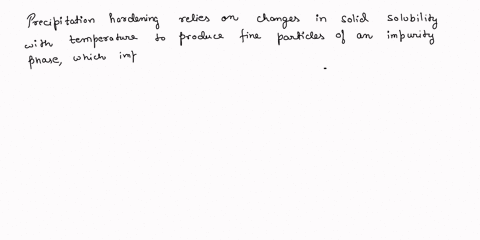 Precipitation hordening relies on changes in solid solubility
with temperature to produce fine particles of an impurity
phase, which imp